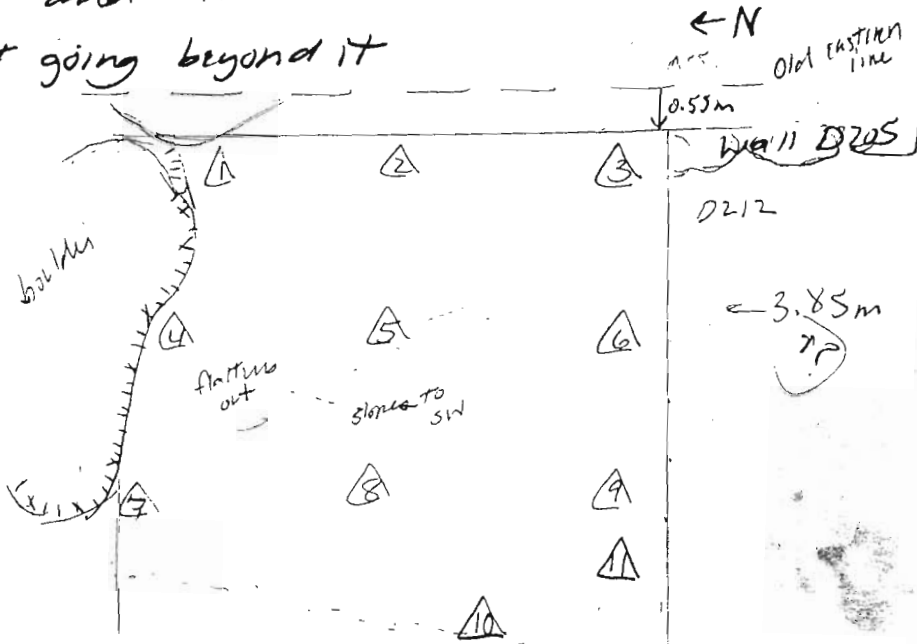 ← N
going beyond it
Old eastern
line
0.55m
Wall D205
1 2 3
D212
boulder
← 3.85m
4 5 6
flattens
out
slopes to
SW
7 8 9
11
10